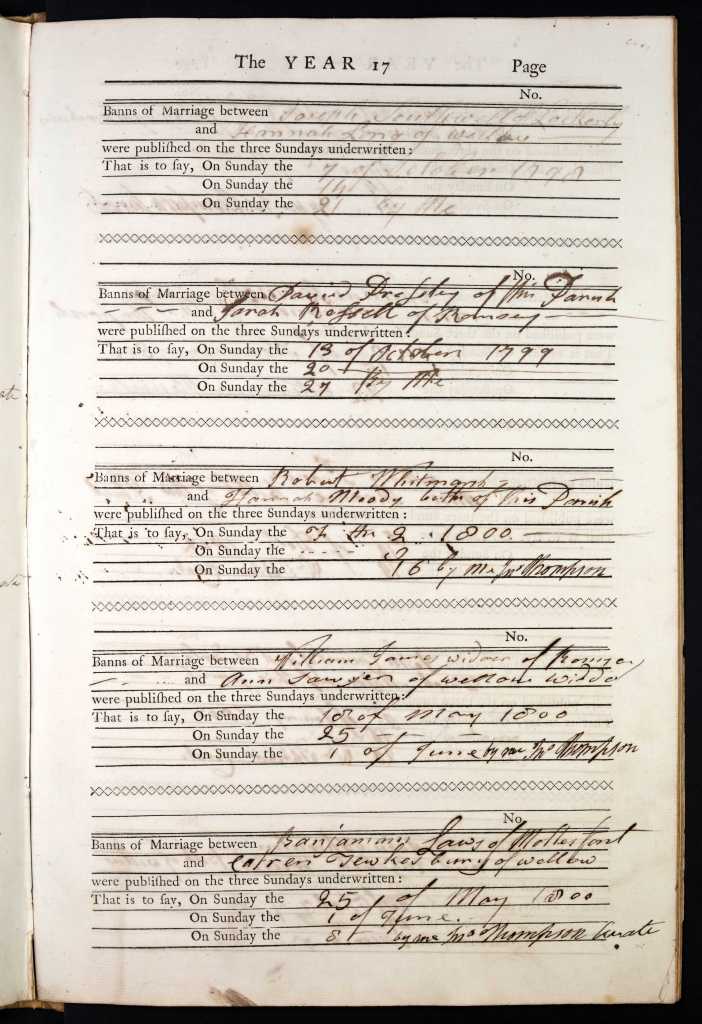 The YEAR 17 Page
No.
Banns of Marriage between Joseph Southwell of Lockerly
and Hannah Ling of wellow
were publiſhed on the three Sundays underwritten:
That is to ſay, On Sunday the 7 of October 179
On Sunday the 14
On Sunday the 21 by Me
No.
Banns of Marriage between David Preſsley of this Pariſh
and Sarah Roſsell of Romsey
were publiſhed on the three Sundays underwritten:
That is to ſay, On Sunday the 13 of October 1799
On Sunday the 20
On Sunday the 27 By Me
No.
Banns of Marriage between Robert Whitmarsh
and Hannah Moody both of this Parish
were publiſhed on the three Sundays underwritten:
That is to ſay, On Sunday the of the 2 1800
On Sunday the 9
On Sunday the 16 by me Jno Thompson
No.
Banns of Marriage between William James widoer of Romsey
and Ann Sawyer of wellow widdo
were publiſhed on the three Sundays underwritten:
That is to ſay, On Sunday the 18 of May 1800
On Sunday the 25
On Sunday the 1 of June by me Jno Thompson
No.
Banns of Marriage between Banjamain Laws of Mottesfont
and Tewkesbury of wellow
were publiſhed on the three Sundays underwritten:
That is to ſay, On Sunday the 25 of May 1800
On Sunday the 1 of June
On Sunday the 8 by me Jno Thompson Curate